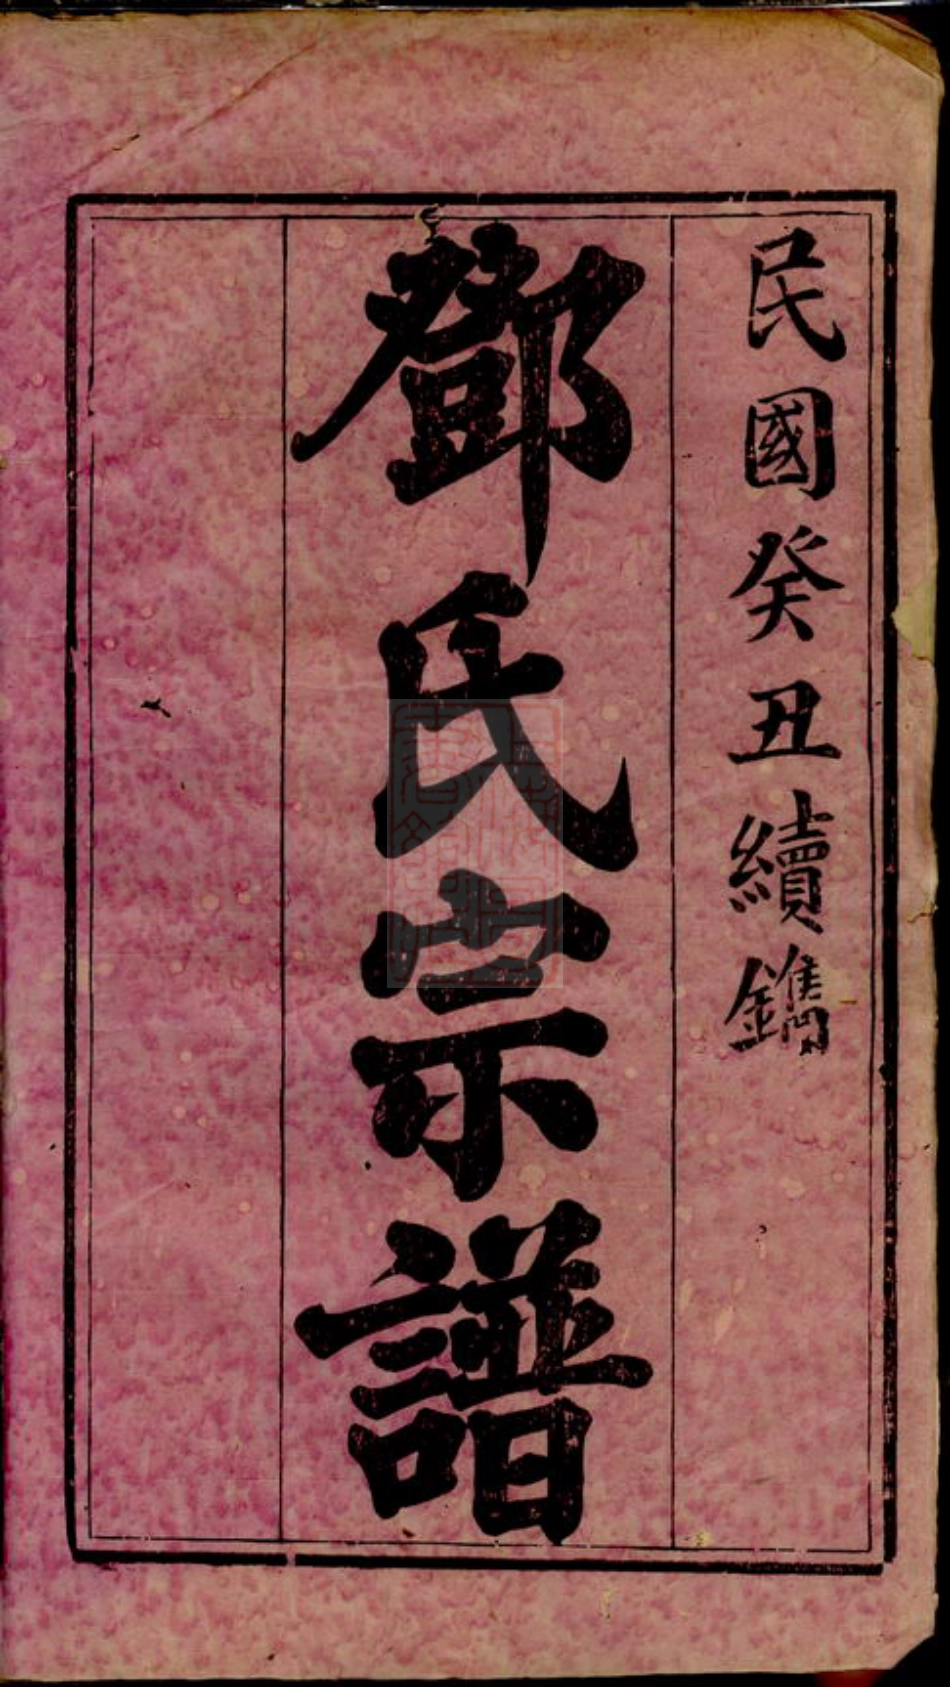 民國癸丑續鐫
鄧氏宗譜